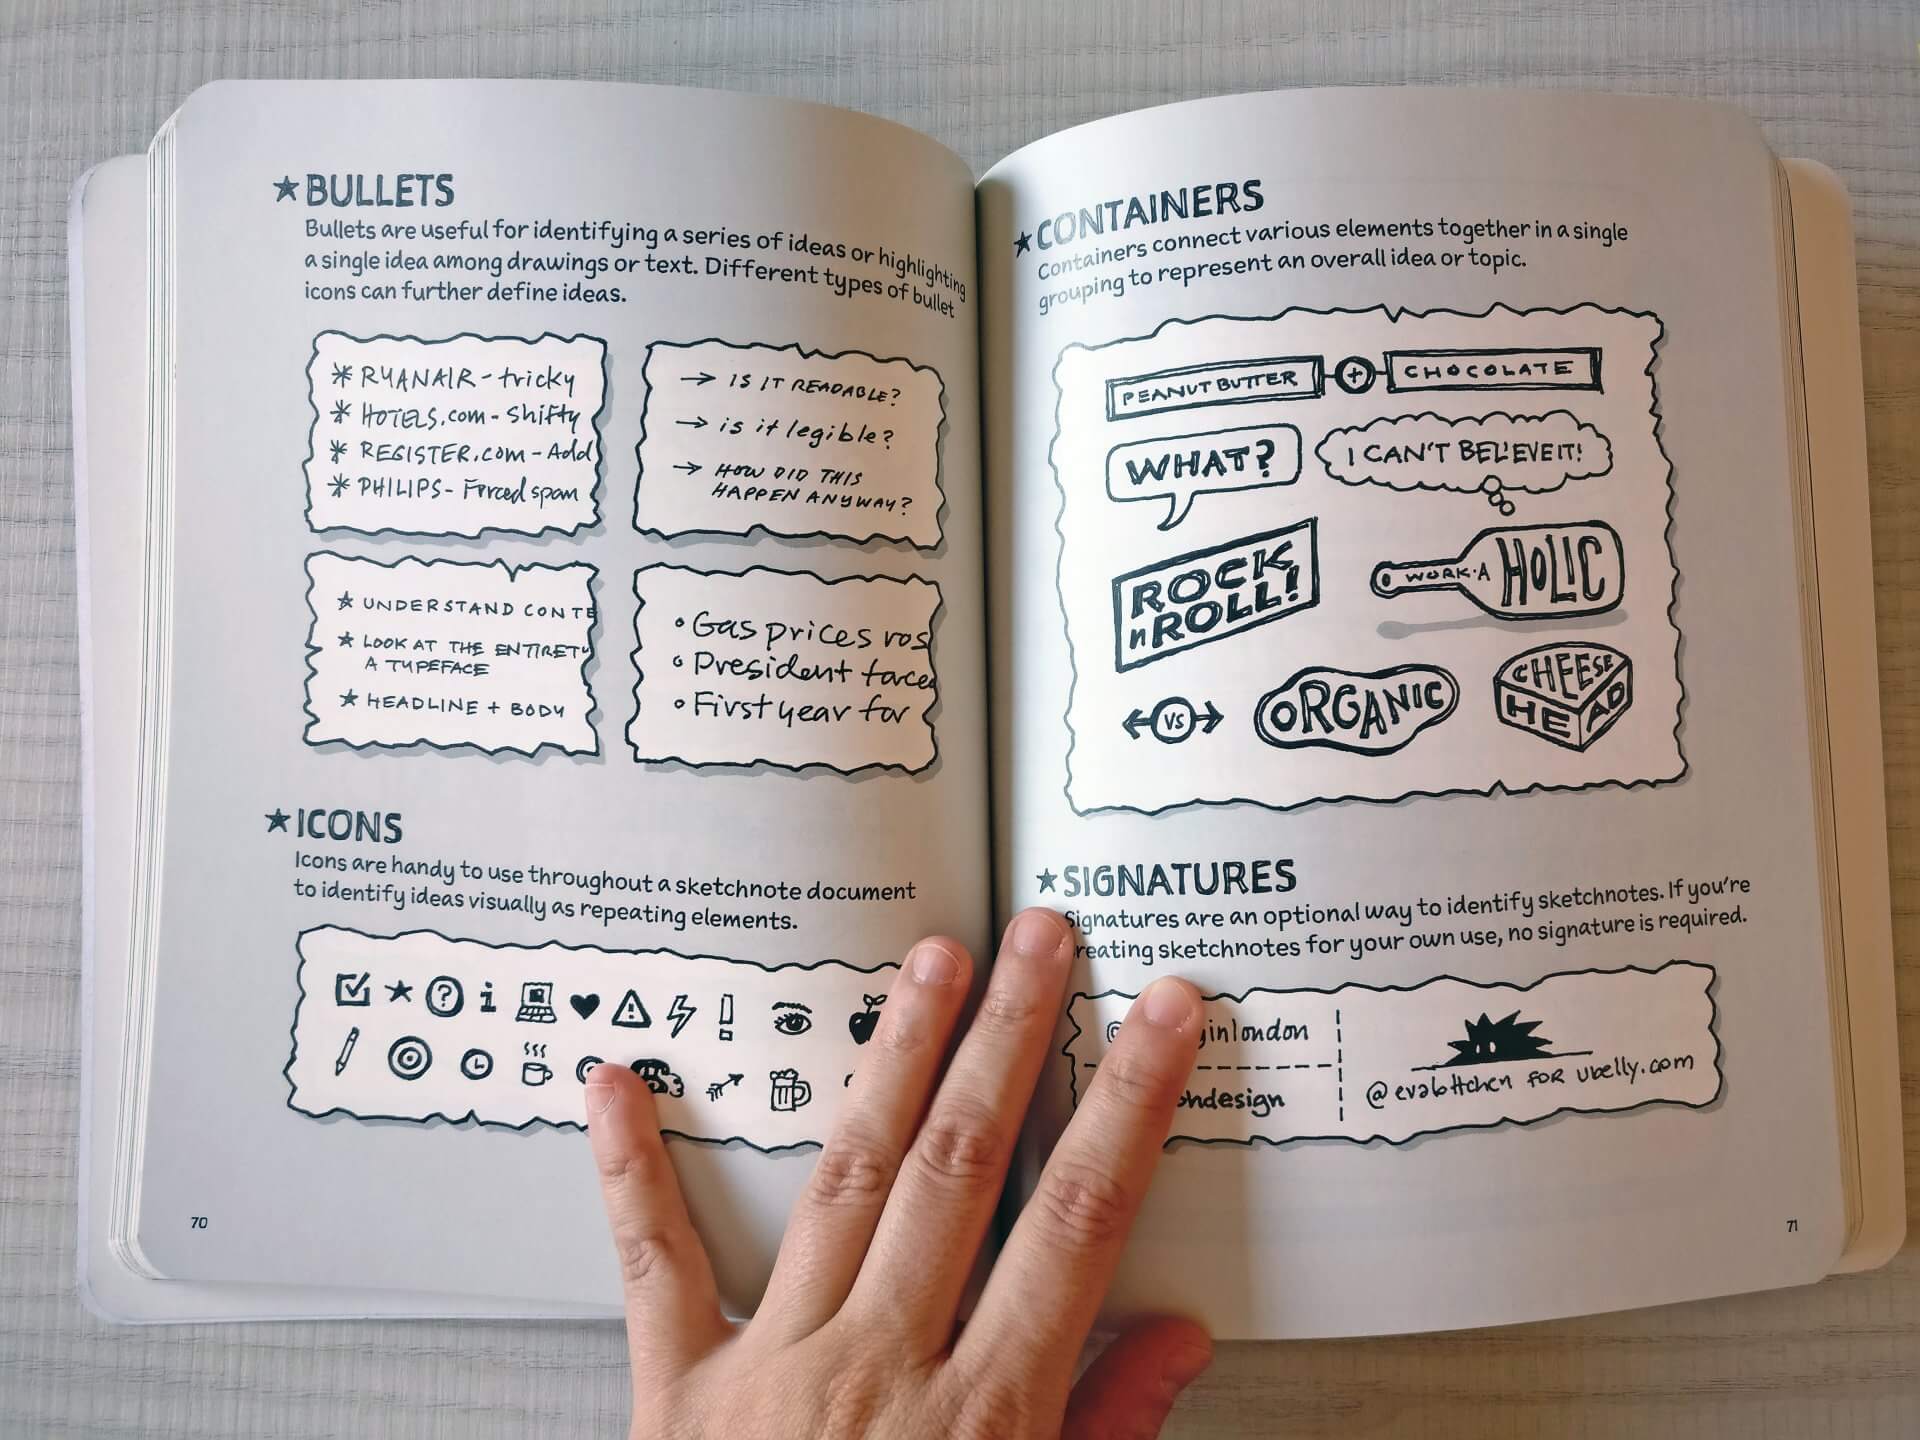 ★BULLETS
Bullets are useful for identifying a series of ideas or highlighting
a single idea among drawings or text. Different types of bullet
icons can further define ideas.
* RYANAIR - tricky
* HOTELS.com - Shifty
* REGISTER.com - Add
* PHILIPS - Forced spam
→ IS IT READABLE?
→ is it legible?
→ HOW DID THIS
HAPPEN ANYWAY?
★ UNDERSTAND CONTE
★ LOOK AT THE ENTIRETY
A TYPEFACE
★ HEADLINE + BODY
• Gas prices ros
• President
• First year for
★ICONS
Icons are handy to use throughout a sketchnote document
to identify ideas visually as repeating elements.
? i ! 
$
70
★CONTAINERS
Containers connect various elements together in a single
grouping to represent an overall idea or topic.
PEANUT BUTTER + CHOCOLATE
WHAT?
I CAN'T BELIEVE IT!
ROCK
n ROLL!
WORK·A HOLIC
VS
ORGANIC
CHEESE
HEAD
★SIGNATURES
Signatures are an optional way to identify sketchnotes. If you're
creating sketchnotes for your own use, no signature is required.
inlondon
hdesign
@evalottchen FOR ubelly.com
71